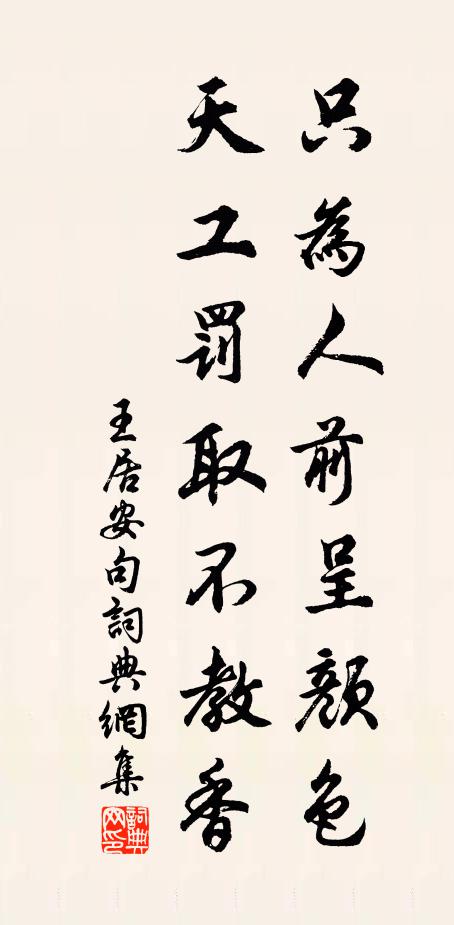 只為人前呈顏色
天工罰取不教香
王居安句詞典網集
詞典网印